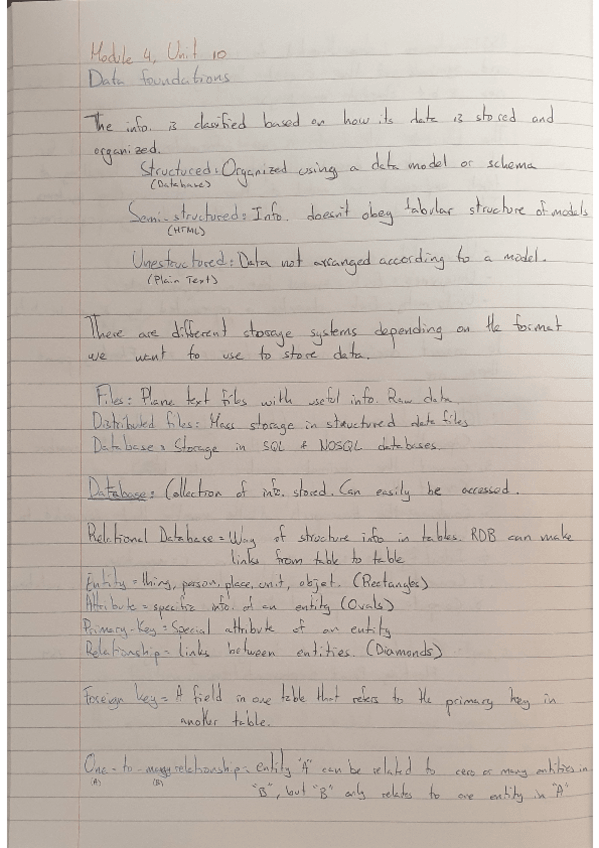 Module 4, Unit 10
Data foundations
The info. is clasified based on how its data is stored and
organized.
Structured: Organized using a data model or schema
(Database)
Semi-structured: Info. doesn't obey tabular structure of models
(HTML)
Unestructured: Data not arranged according to a model.
(Plain Text)
There are different storage systems depending on the format
we want to use to store data.
Files: Plane text files with useful info. Raw data
Distributed files: Mass storage in structured data files
Database: Storage in SQL & NOSQL databases.
Database: Collection of info. stored. Can easily be accessed.
Relational Database = Way of structure info in tables. RDB can make
links from table to table
Entity = thing, person, place, unit, objet. (Rectangles)
Attribute = specific info. of an entity (Ovals)
Primary-Key = Special attribute of an entity
Relationship = links between entities. (Diamonds)
Foreign key = A field in one table that refers to the primary key in
another table.
One-to-many relationship = entity "A" can be related to cero or many entities in
(A) (B) "B", but "B" only relates to one entity in "A"